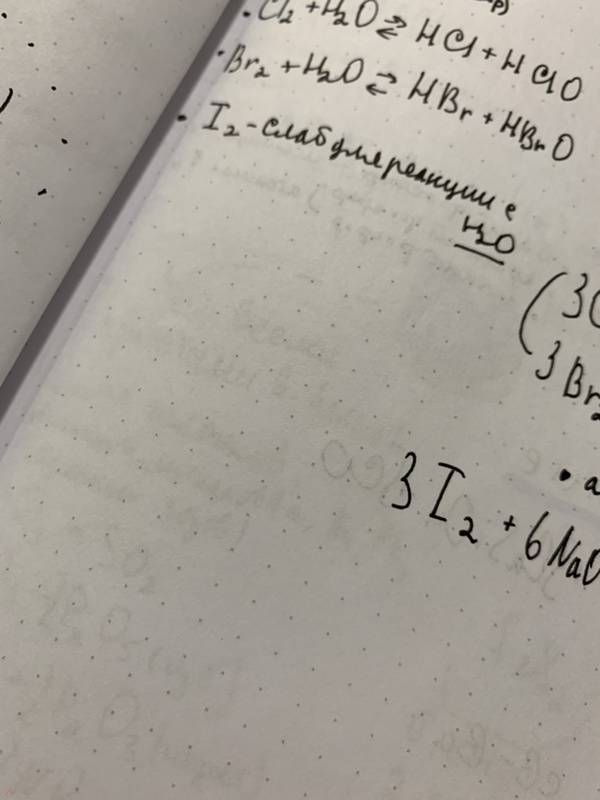 • Cl₂ + H₂O ⇄ HCl + HClO
• Br₂ + H₂O ⇄ HBr + HBrO
• I₂ - слаб для реакции с
H₂O
(3
3 Br₂
• а
3 I₂ + 6 NaO